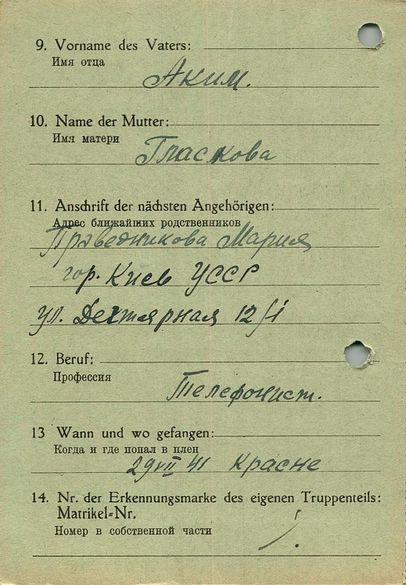 9. Vorname des Vaters:
Имя отца
Аким.
10. Name der Mutter:
Имя матери
Гласкова
11. Anschrift der nächsten Angehörigen:
Адрес ближайших родственников
Праведникова Мария
гор. Киев УССР
ул. Дехтярная 12/1
12. Beruf:
Профессия
Телефонист.
13 Wann und wo gefangen:
Когда и где попал в плен
29 VII 41 Красне
14. Nr. der Erkennungsmarke des eigenen Truppenteils:
Matrikel=Nr.
Номер в собственной части